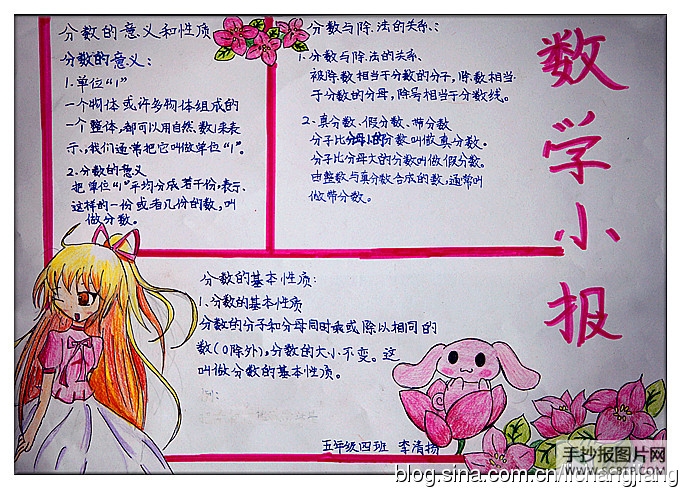 数学小报
分数的意义和性质
分数的意义：
1.单位“1”
一个物体或许多物体组成的
一个整体，都可以用自然数1来表
示，我们通常把它叫做单位“1”。
2.分数的意义
把单位“1”平均分成若干份，表示
这样的一份或者几份的数，叫
做分数。
分数与除法的关系：
1.分数与除法的关系
被除数相当于分数的分子，除数相当
于分数的分母，除号相当于分数线。
2.真分数、假分数、带分数
分子比分母小的分数叫做真分数。
分子比分母大的分数叫做假分数。
由整数与真分数合成的数，通常叫
做带分数。
分数的基本性质：
1.分数的基本性质
分数的分子和分母同时乘或除以相同的
数（0除外），分数的大小不变。这
叫做分数的基本性质。
例：
五年级四班 李清扬
手抄报图片网
blog.sina.com.cn/lichangjiang